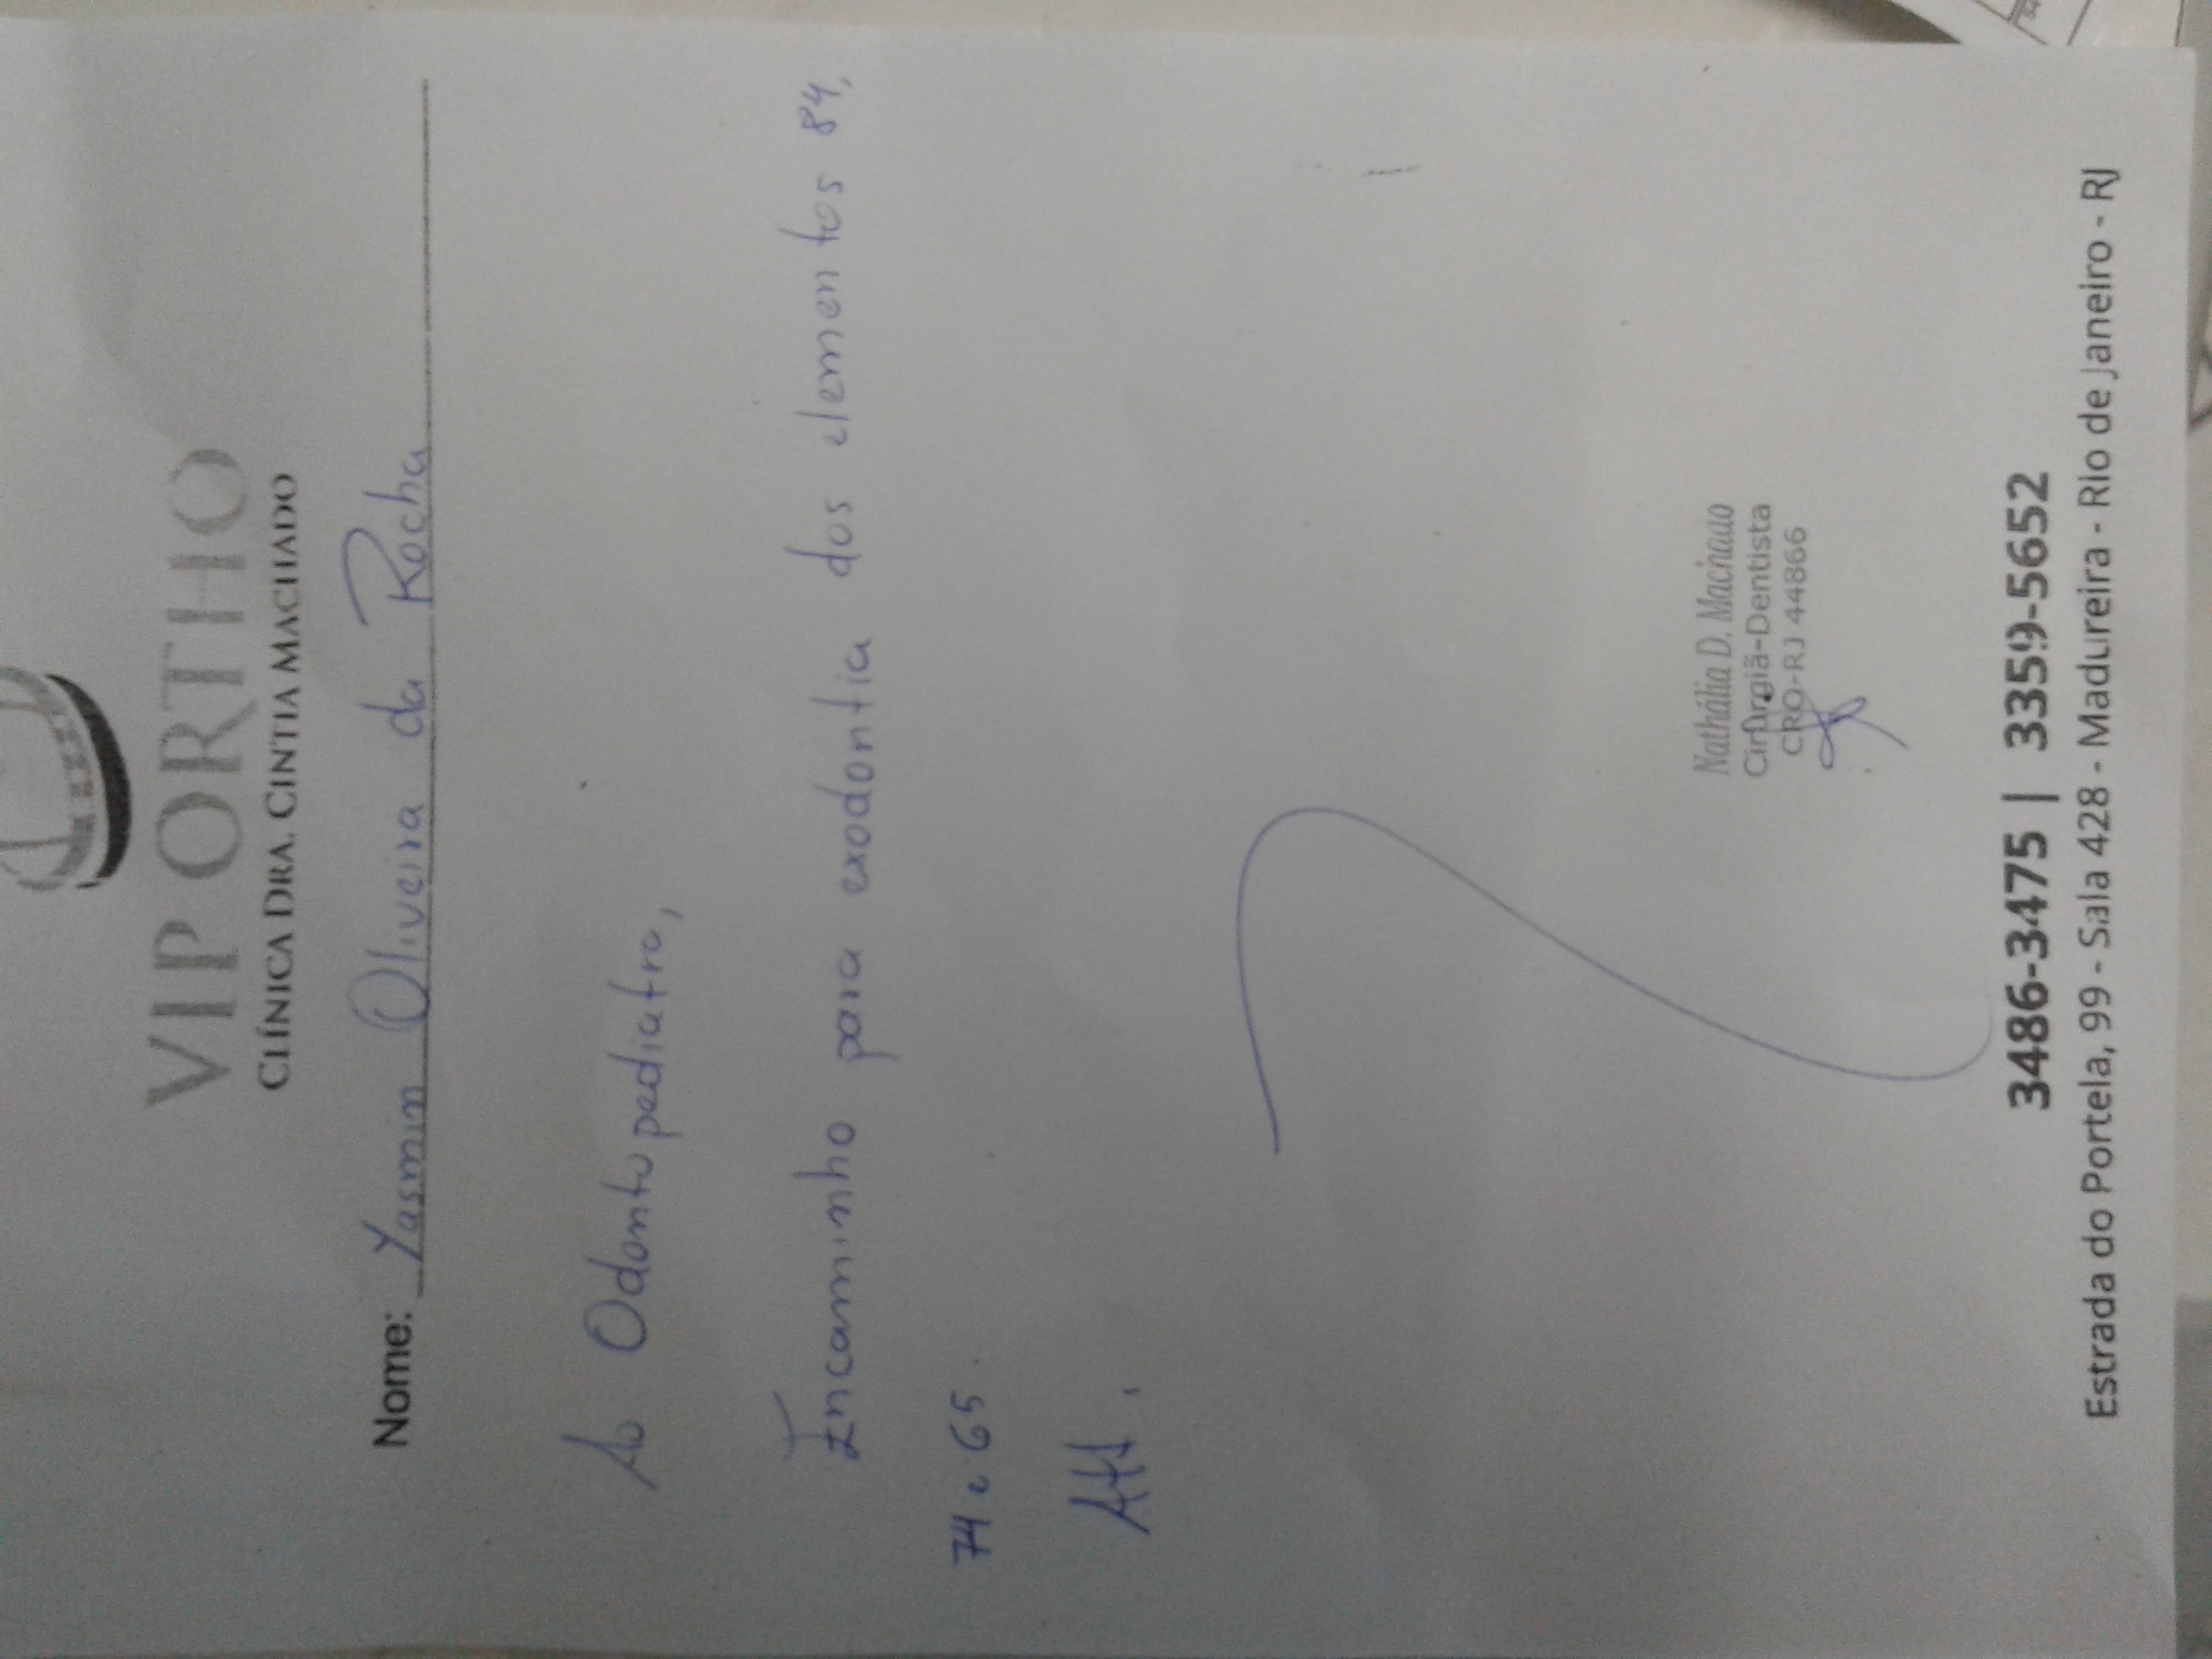 VIP ORTHO
CLÍNICA DRA. CINTIA MACHADO
Nome: Yasmin Oliveira da Rocha
Ao Odontopediatra,
Encaminho para exodontia dos elementos 84,
74 e 65.
Att.
Nathália D. Machado
Cirurgiã-Dentista
CRO-RJ 44866
3486-3475 | 3359-5652
Estrada do Portela, 99 - Sala 428 - Madureira - Rio de Janeiro - RJ